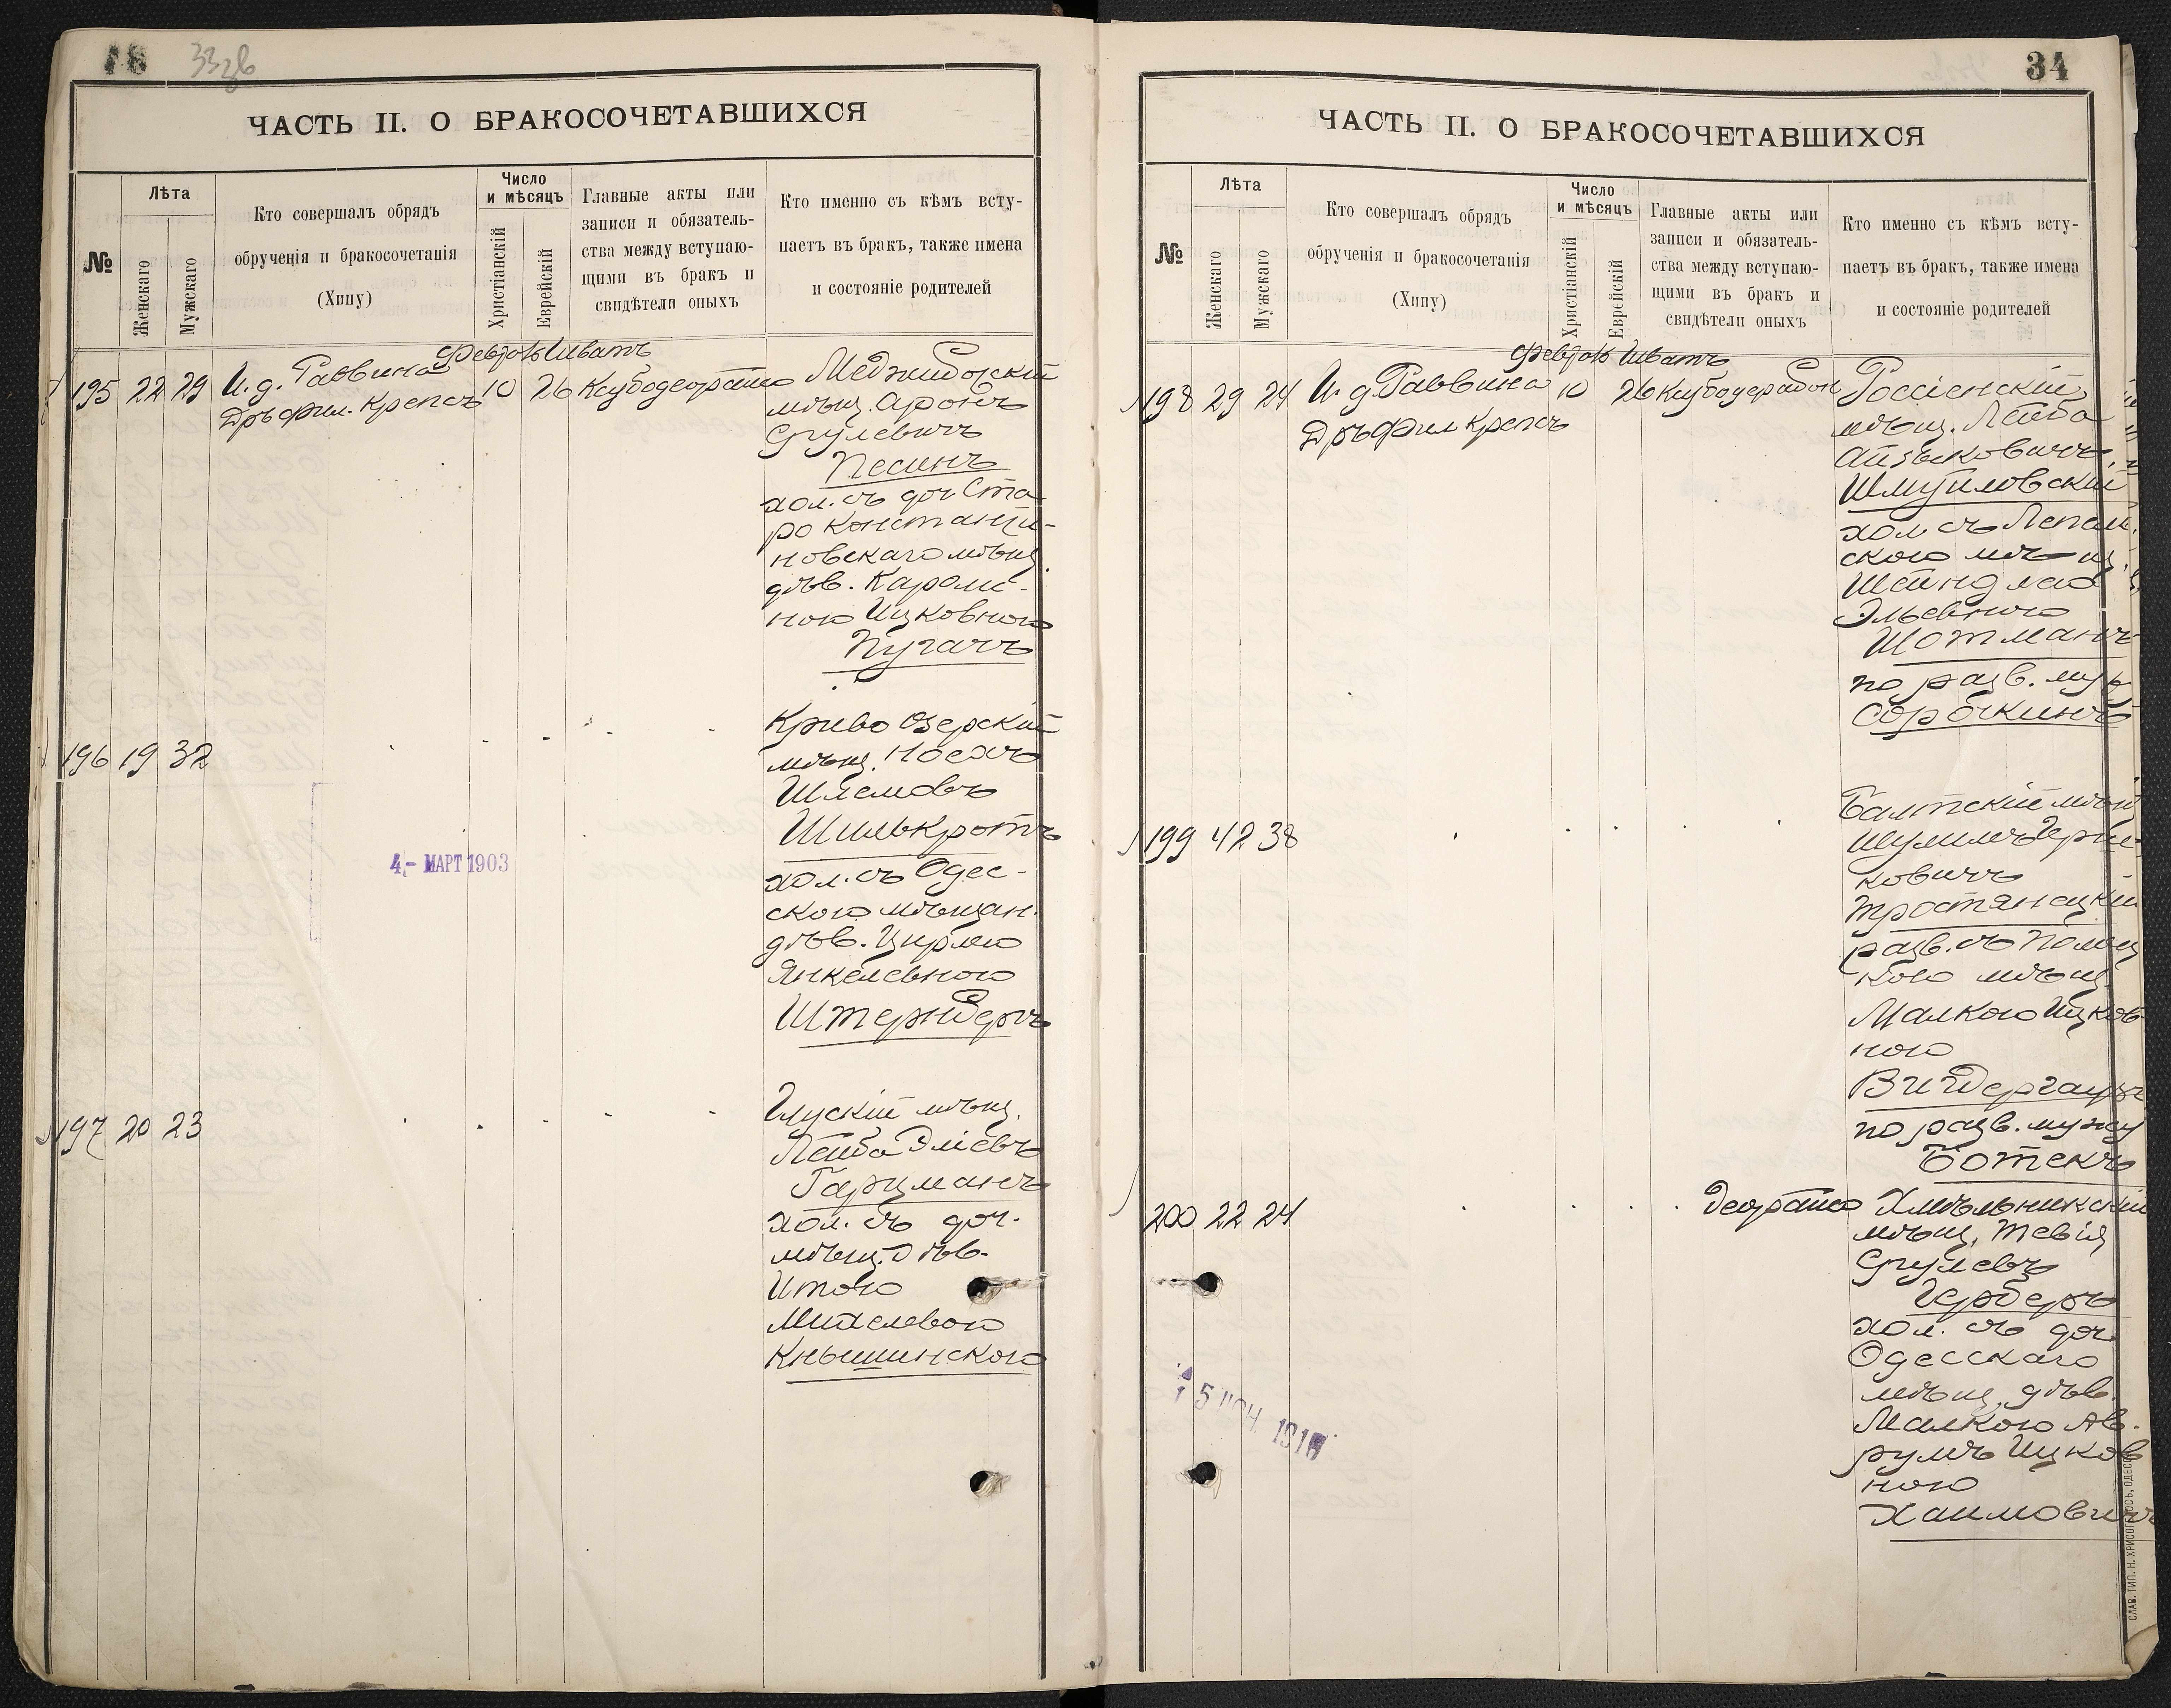 18 33зв
ЧАСТЬ II. О БРАКОСОЧЕТАВШИХСЯ
№
Лѣта
Женскаго
Мужскаго
Кто совершалъ обрядъ
обрученія и бракосочетанія
(Хипу)
Число
и мѣсяцъ
Христіанскій
Еврейскій
Главные акты или
записи и обязатель-
ства между вступаю-
щими въ бракъ и
свидѣтели оныхъ
Кто именно съ кѣмъ всту-
паетъ въ бракъ, также имена
и состояніе родителей
Февраль Шватъ
195 22 29 И. д. Раввина 10 26
Дръ Фил. Крепсъ
Меджибожскій
мѣщ. Аронъ
Срулевичъ
Песинъ
хол. съ доч Ста
ро Константи-
новскаго мѣщ.
дѣв. Кароли-
ною Ицковною
Пугачъ
196 19 32
Криво Озерскій
мѣщ. Носахъ
Шлемовъ
Шилькротъ
хол. съ Одес-
скою мѣщан.
дѣв. Цирлею
Янкелевною
Штернбергъ
4 - МАРТ 1903
197 20 23
Глускій мѣщ.
Лейба Эліевъ
Гарцманъ
хол. съ доч.
мѣщ. дѣв.
Итою
Михелевою
Кнышинскою
34
ЧАСТЬ II. О БРАКОСОЧЕТАВШИХСЯ
№
Лѣта
Женскаго
Мужскаго
Кто совершалъ обрядъ
обрученія и бракосочетанія
(Хипу)
Число
и мѣсяцъ
Христіанскій
Еврейскій
Главные акты или
записи и обязатель-
ства между вступаю-
щими въ бракъ и
свидѣтели оныхъ
Кто именно съ кѣмъ всту-
паетъ въ бракъ, также имена
и состояніе родителей
Февраль Шватъ
198 29 24 И. д. Раввина 10 26
Дръ Фил Крепсъ
Россіенскій
мѣщ. Лейба
Айзыковичъ
Шмуйловскій
хол съ Лепель
скою мѣщ.
Шейндлею
Эльевною
Шотманъ
по разв. мужу
Сорочкинъ
199 42 38
Балтскій мѣщ
Шулимъ Герш-
ковичъ
Тростянецкій
разв. съ Полоц
кою мѣщ.
Малкою Ицков
ною
Видергаузъ
по разв. мужу
Ботекъ
200 22 24
Хмѣльникскій
мѣщ. Тевія
Срулевъ
Герберъ
хол. съ доч.
Одесскаго
мѣщ. дѣв.
Малкою Ав-
румъ Ицков
ною
Хаимовичъ
СЛАВ. ТИП. Н. ХРИСОГЕЛОСЪ, ОДЕССА